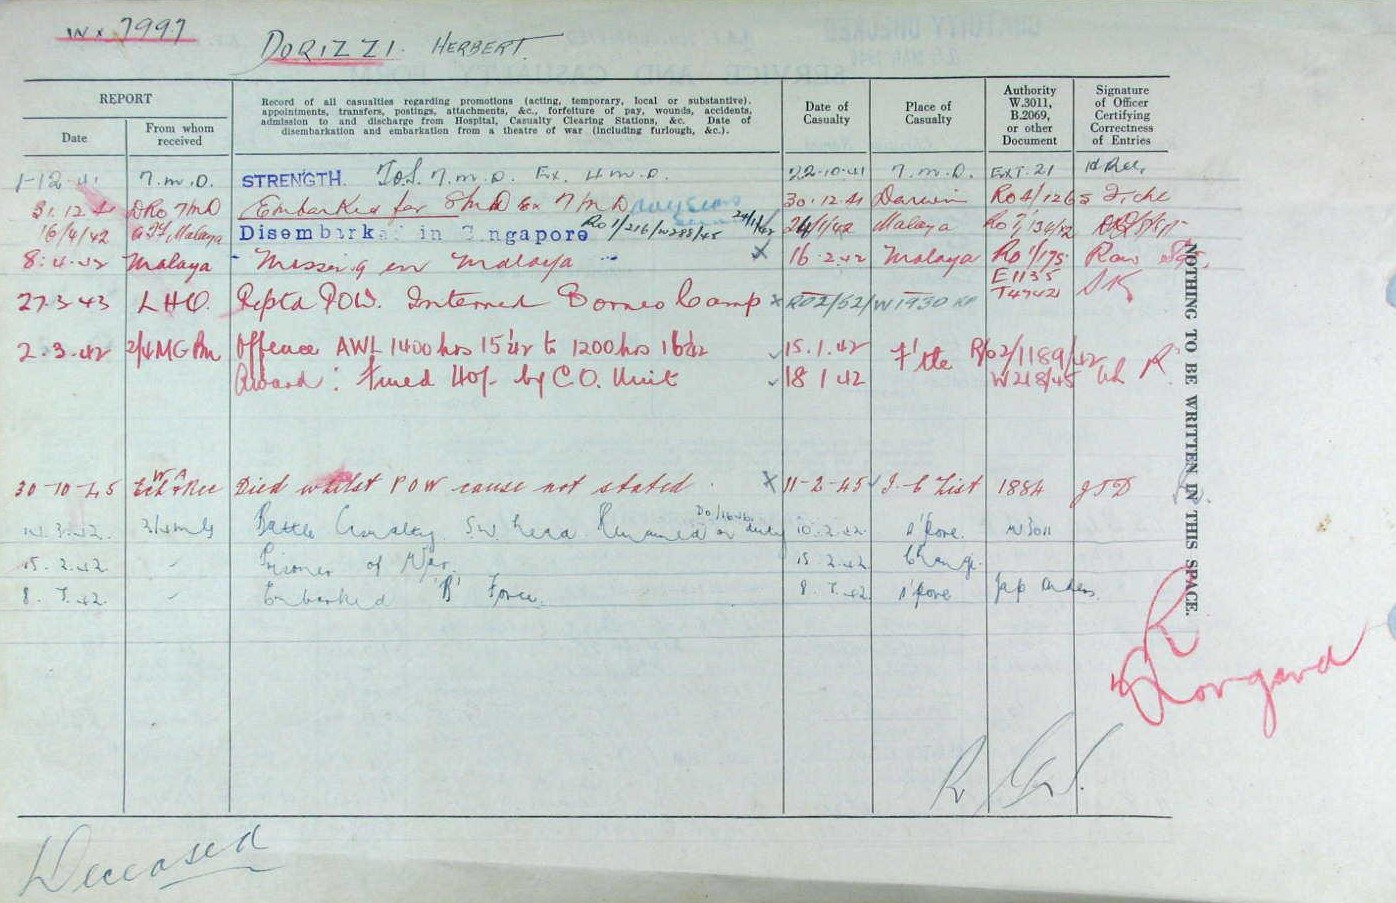 WX 7997
DORIZZI. HERBERT.
REPORT
Date
From whom received
Record of all casualties regarding promotions (acting, temporary, local or substantive),
appointments, transfers, postings, attachments, &c., forfeiture of pay, wounds, accidents,
admission to and discharge from Hospital, Casualty Clearing Stations, &c. Date of
disembarkation and embarkation from a theatre of war (including furlough, &c.).
Date of Casualty
Place of Casualty
Authority W.3011, B.2069, or other Document
Signature of Officer Certifying Correctness of Entries
1-12-41 7.M.D. STRENGTH. T.O.S. 7.M.D. Ex. 4 M.D. 22-10-41 7.M.D. EXT. 21
31.12.41 DRO 7MD Embarked for 8MD Ex 7MD 30.12.41 Darwin Ro 4/1265
16/4/42 Malaya Disembarked in Singapore Ro 1/216/W288/45 24/1/42 24/1/42 Malaya
8.4.42 Malaya - Missing in Malaya - x 16.2.42 Malaya Ro 1/175
27.3.43 LHQ. Reptd POW. Interned Borneo Camp x R02/52/W1930 E1135 T4742 SK
2.3.42 2/4 MG Bn Offence AWL 1400 hrs 15/1/42 to 1200 hrs 16/1/42 15.1.42 F'tle R/02/1189/42
Award: Fined 40/- by C.O. Unit 18 1 42 W218/45
30-10-45 Died whilst POW cause not stated. x 11-2-45 J-C List 1884
14.3.42. Battle Casualty S.W. head Remained on duty 10.2.42 S'pore. W3011
15.2.42 Prisoner of War. 15.2.42 Changi.
8.7.42 Embarked 'B' Force. 8.7.42 S'pore Jap orders.
NOTHING TO BE WRITTEN IN THIS SPACE.
Deceased